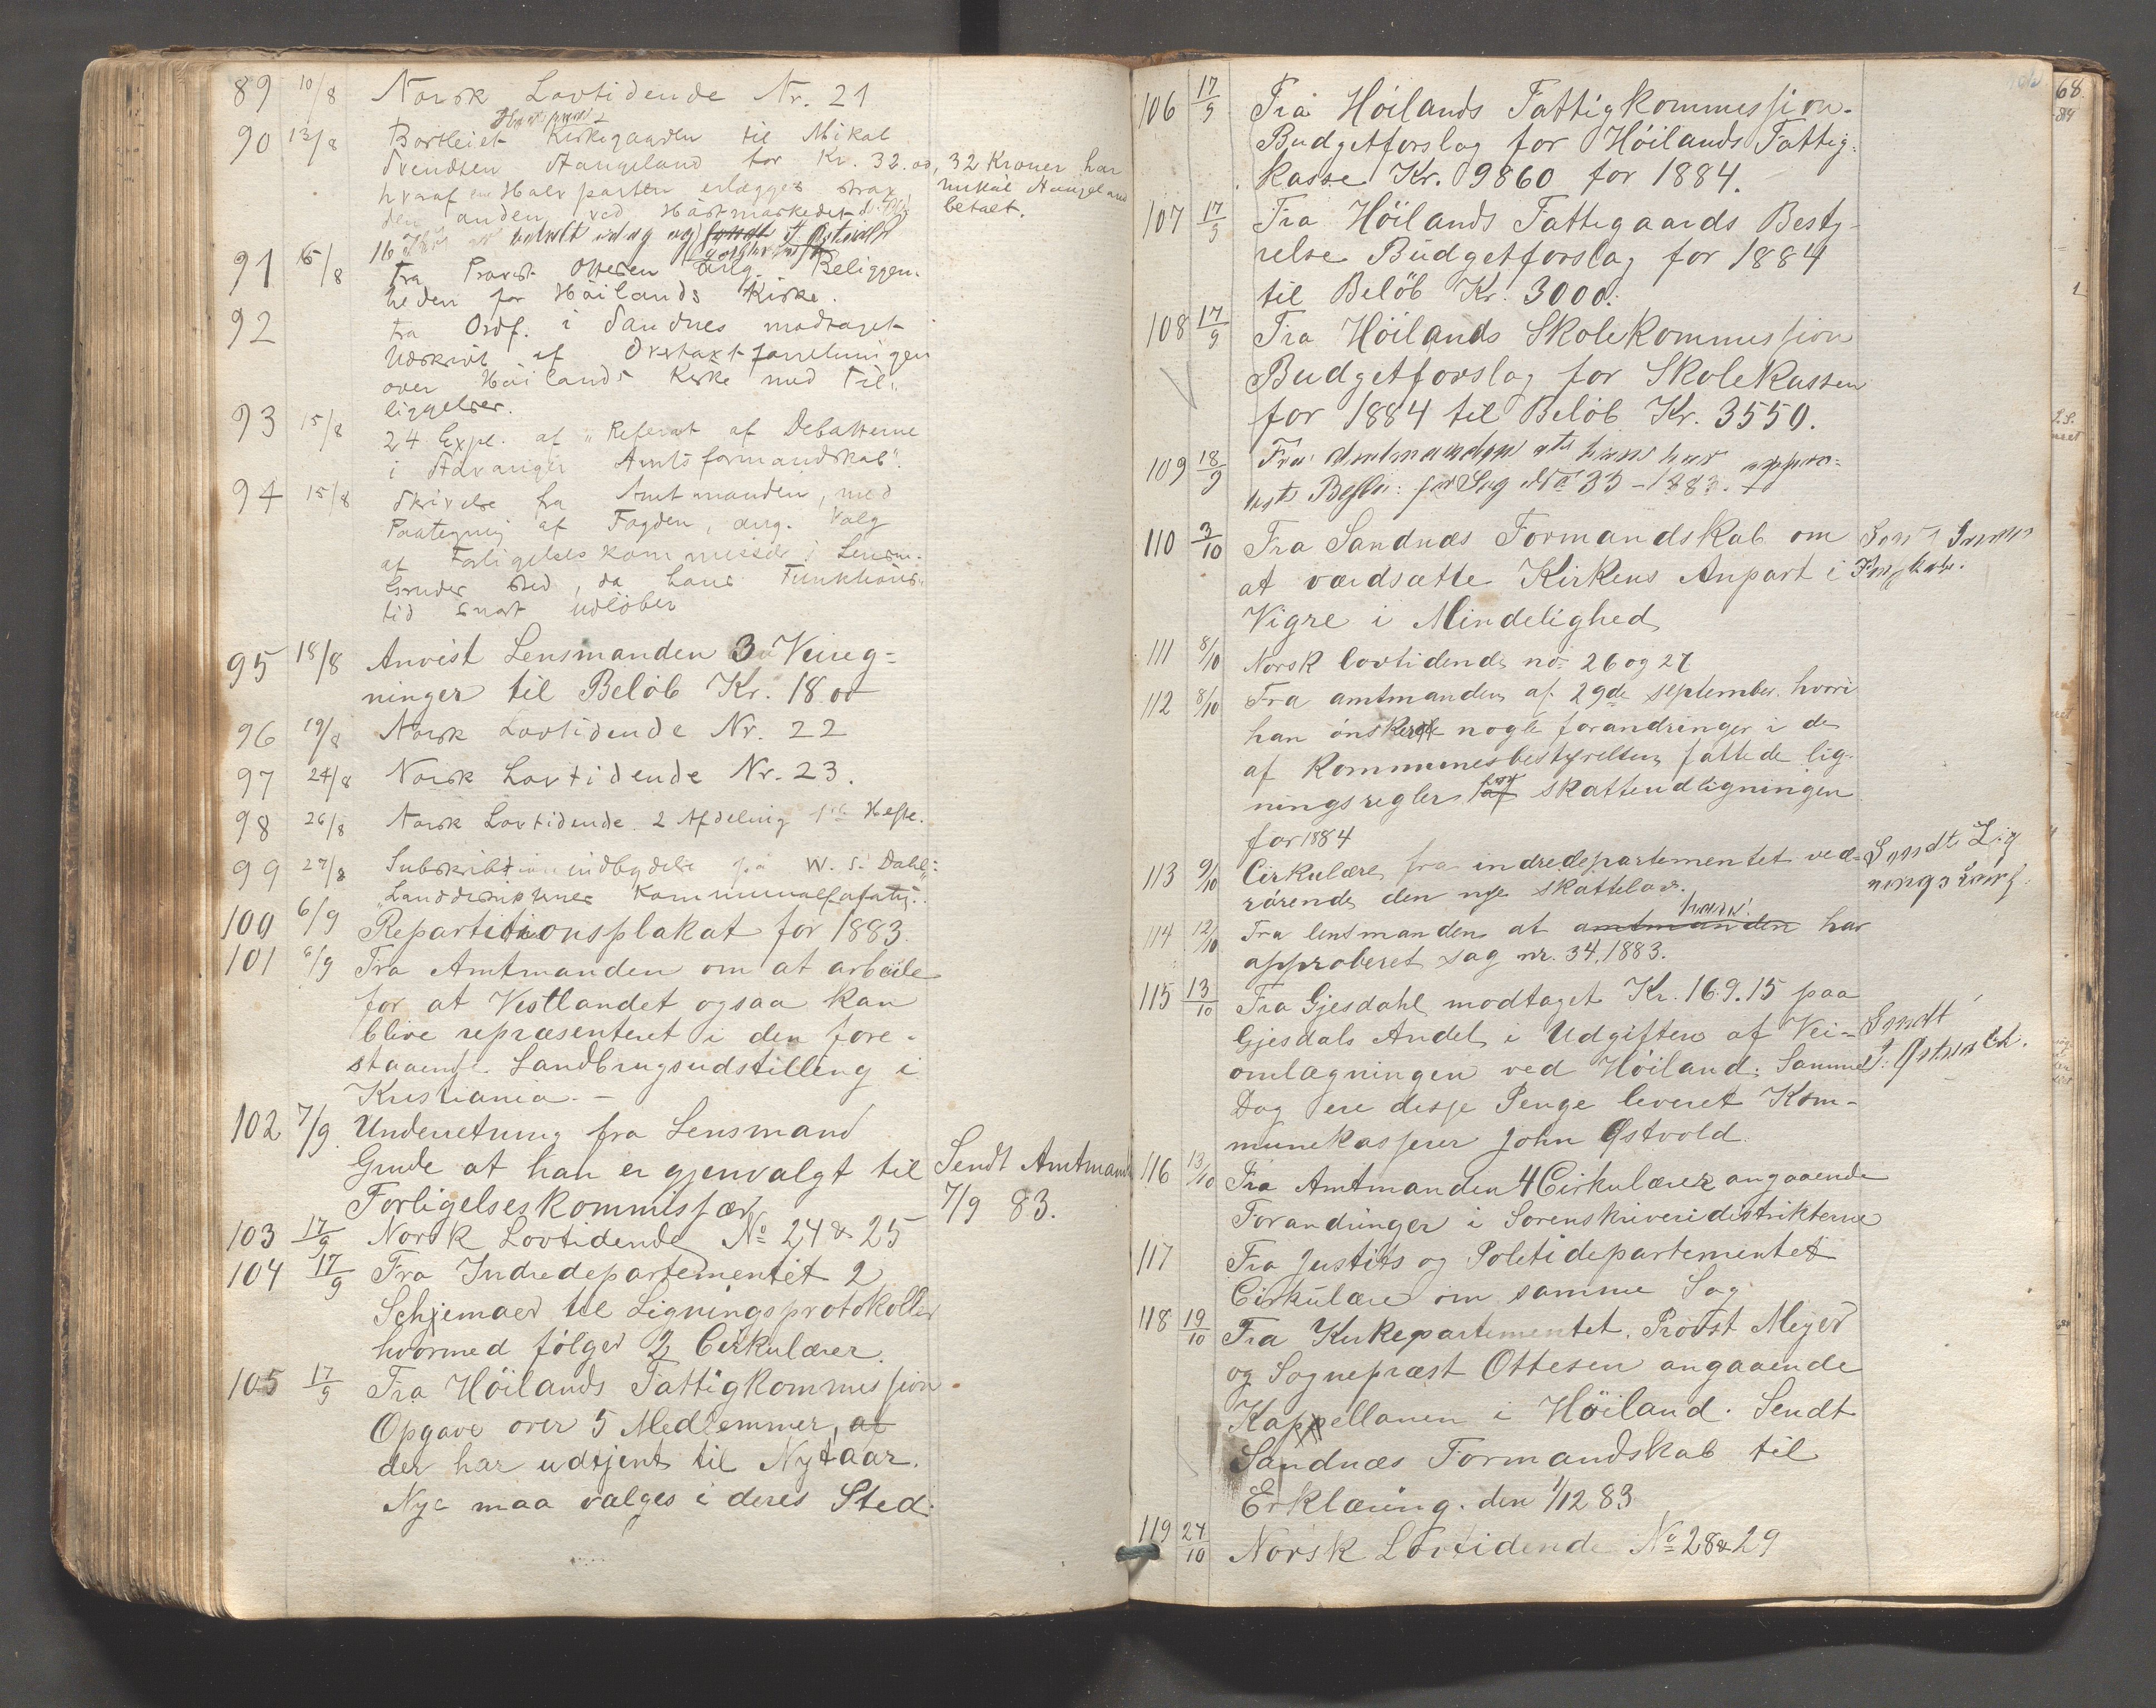 89 10/8 Norsk Lovtidende Nr. 21
90 13/8 Bortleiet Kirkegaarden til Mikal
Svendsen Haugeland for Kr. 32.00, 32 Kroner har
hvoraf en Halvparten erlægges strax Mikal Haugeland
den anden ved Höstmarkedet d. A. betalt.
16 betalt idag og
91 15/8 Fra Provst Ottesen ang. Beliggen-
heden for Höilands Kirke.
92 Fra Ordf. i Sandnes modtaget
Udskrift af Overtaxtforretningen
over Höilands Kirke med Til-
liggelser.
93 15/8 24 Expl. af "Referat af Debatterne
i Stavanger Amtsformandskab".
94 15/8 Skrivelse fra Amtmanden, med
Paategning af Fogden, ang. Valg
af Forligelseskommissær i Lensm.
Grudes Sted, da hans Funktions-
tid snart udlöber
95 18/8 Anvist Lensmanden 3 Veireg-
ninger til Beløb Kr. 18.00
96 19/8 Norsk Lovtidende Nr. 22
97 24/8 Norsk Lovtidende Nr. 23.
98 26/8 Norsk Lovtidende. 2 Afdeling 1ste Hefte.
99 27/8 Subskribtionsindbydelse på W. S. Dahls:
"Landdistrikternes Kommunalforfatn".
100 6/9 Repartitionsplakat for 1883.
101 6/9 Fra Amtmanden om at arbeide
for at Vestlandet ogsaa kan
blive repræsenteret i den fore-
staaende Landbrugsudstilling i
Kristiania. -
102 7/9 Underretning fra Lensmand
Grude at han er gjenvalgt til Sendt Amtmanden
Forligelseskommissær 7/9 83.
103 17/9 Norsk Lovtidende No 24 & 25
104 17/9 Fra Indredepartementet 2
Schjemaer til Ligningsprotokoller
hvormed følger 2 Cirkulærer.
105 17/9 Fra Höilands Fattigkommission
Opgave over 5 Medlemmer, af
der har udtjent til Nytaar.
Nye maa vælges i deres Sted.
106 17/9 Fra Höilands Fattigkommission.
Budgetforslag for Höilands Fattig-
kasse Kr. 9860 for 1884.
107 17/9 Fra Höilands Fattegaards Besty-
relse Budgetforslag for 1884
til Beløb Kr. 3000.
108 17/9 Fra Höilands Skolekommission
Budgetforslag for Skolekassen
for 1884 til Beløb Kr. 3550.
109 18/9 Fra Amtmanden at hans har appro-
bert Beslu: for Sag No 33 - 1883.
110 3/10 Fra Sandnæs Formandskab om
at værdsætte Kirkens Anpart i
Vigre i Mindelighed
111 8/10 Norsk lovtidende no 26 og 27
112 8/10 Fra amtmanden af 29de september. hvori
han önsker nogle forandringer i de
af Kommunesbestyrelsen fattede lig-
ningsregler for skatteudligningen
for 1884
113 9/10 Cirkulære fra indredepartementet ved- Sendt Lig
rörende den nye skattelov. nings
114 12/10 Fra lensmanden at amtmanden har
approberet sag nr. 34, 1883.
115 13/10 Fra Gjesdahl modtaget Kr. 169.15 paa
Gjesdals Andel i Udgiften af Vei- Sendt
omlægningen ved Höiland. Samme J. Østvold.
Dag ere disse Penge leveret Kom-
munekasserer John Østvold.
116 13/10 Fra Amtmanden 4 Cirkulærer angaaende
Forandringer i Sorenskriveridistrikterne
117 Fra Justits og Politidepartementet
Cirkulære om samme Sag
118 19/10 Fra Kirkepartementet. Provst Meyer
og Sognepræst Ottesen angaaende
Kappellanen i Höiland. Sendt
Sandnæs Formandskab til
Erklæring. den 1/12 83
119 27/10 Norsk Lovtidende No 28 & 29
68.